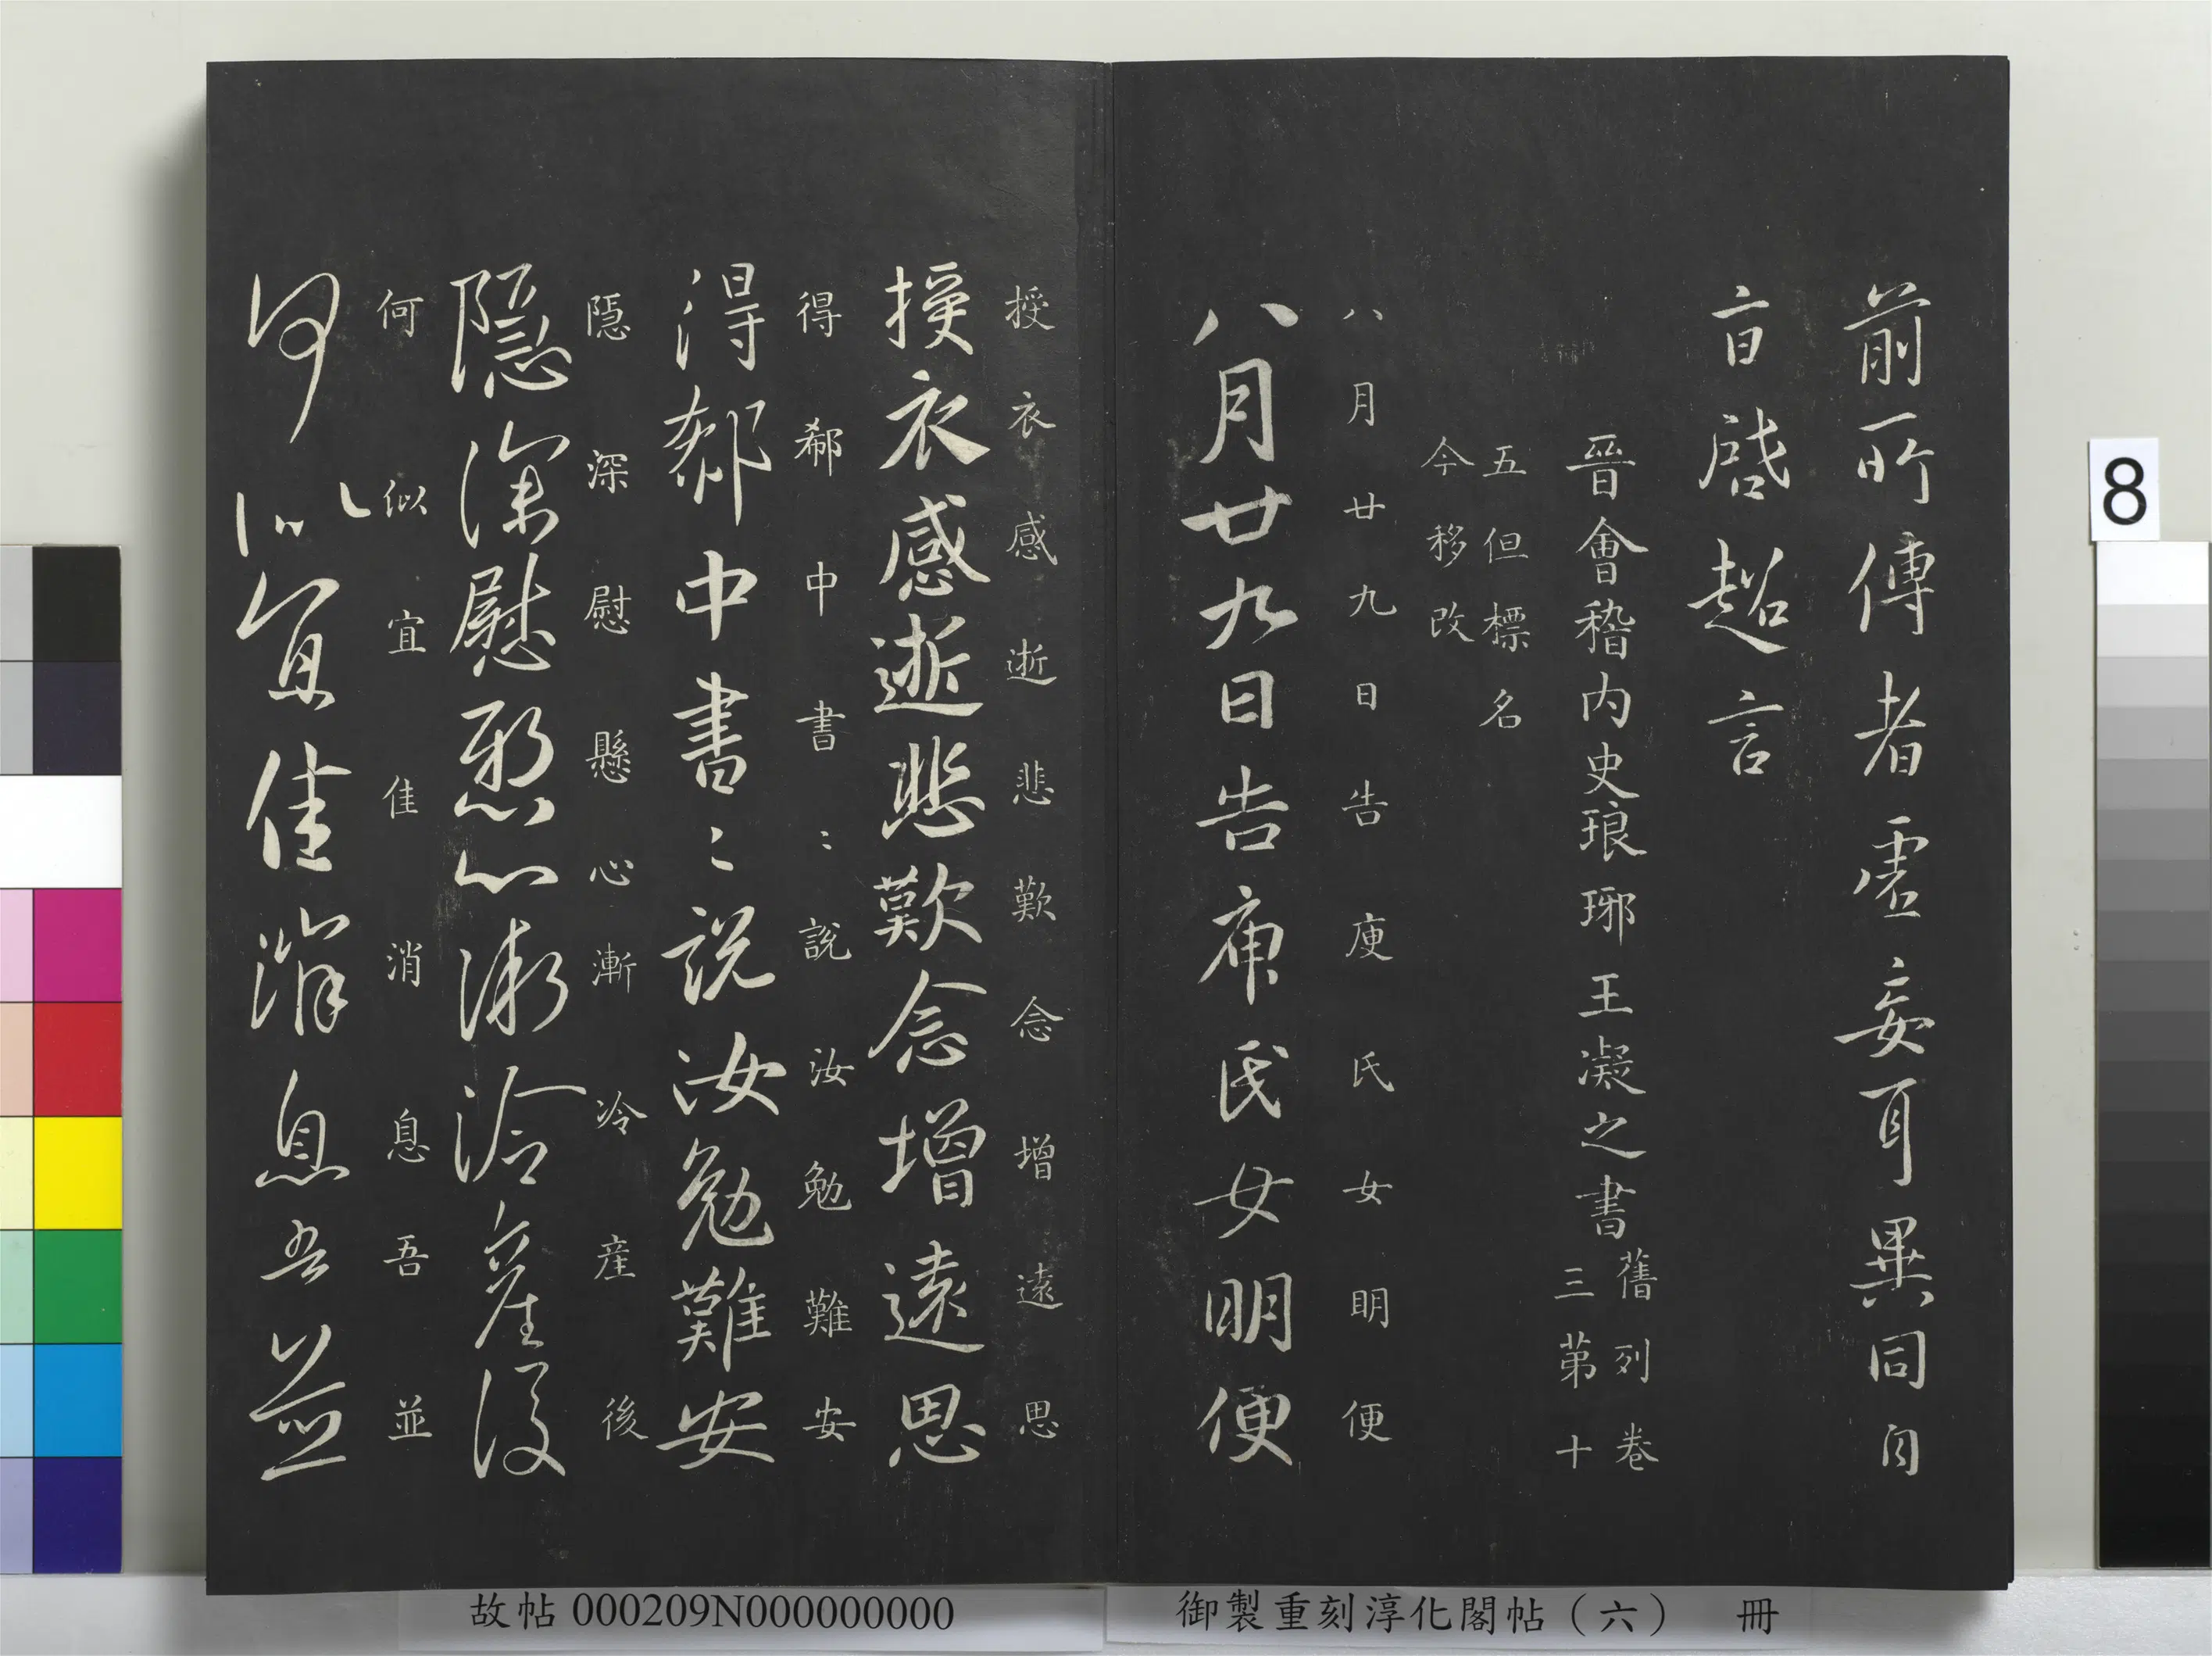 前所傳者虛妄耳異同自
盲啓超言
晉會稽內史琅琊王凝之書
舊列卷
三第十
五但標名
今移改
八月廿九日告庾氏女明便
八月廿九日告庾氏女明便
授衣感逝悲歎念增遠思
授衣感逝悲歎念增遠思
得郗中書〻說汝勉難安
得郗中書〻說汝勉難安
隱深慰懸心漸冷產後
隱深慰懸心漸冷產後
何似宜佳消息吾並
何似宜佳消息吾並
8
御製重刻淳化閣帖（六） 冊
故帖 000209N000000000